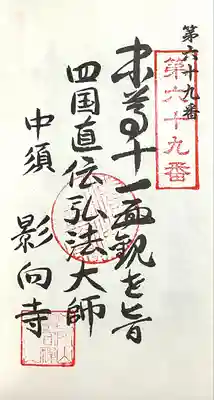 第六十九番
第六十九番
本尊十一面観世音
四国直伝弘法大師
中須
影向寺